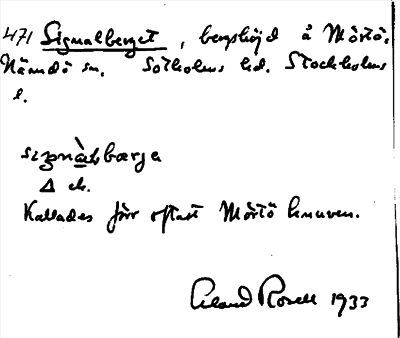 471 Signalberget, bergshöjd å Mörtö,
Nämdö sn. Sotholms hd. Stockholms
l.
Δ ek.
Kallades förr oftast Mörtö knuven.
Rosell 1933